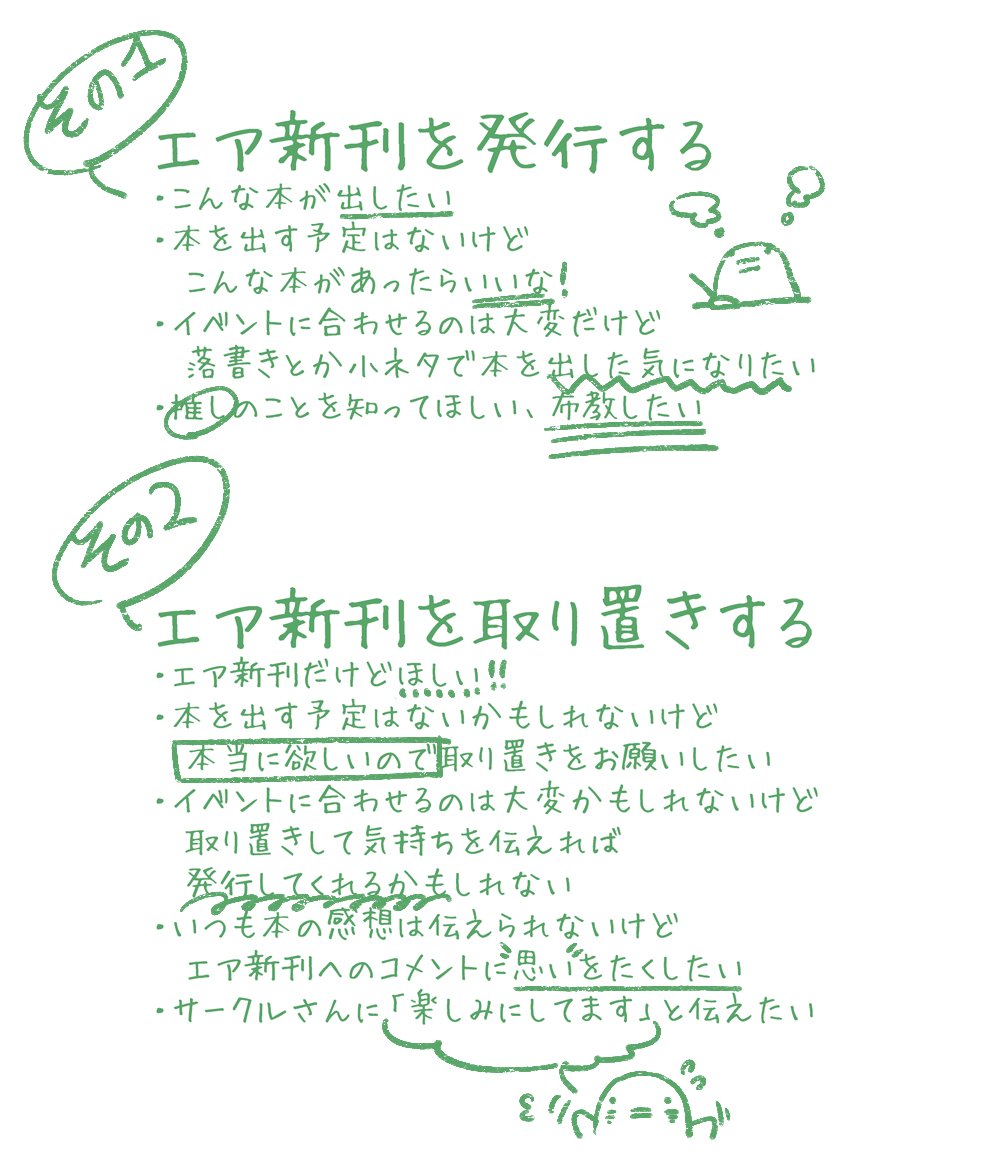 その1
エア新刊を発行する
・こんな本が出したい
・本を出す予定はないけど
こんな本があったらいいな!
・イベントに合わせるのは大変だけど
落書きとか小ネタで本を出した気になりたい
・推しのことを知ってほしい、布教したい
その2
エア新刊を取り置きする
・エア新刊だけどほしい!!
・本を出す予定はないかもしれないけど
本当に欲しいので取り置きをお願いしたい
・イベントに合わせるのは大変かもしれないけど
取り置きして気持ちを伝えれば
発行してくれるかもしれない
・いつも本の感想は伝えられないけど
エア新刊へのコメントに思いをたくしたい
・サークルさんに「楽しみにしてます」と伝えたい